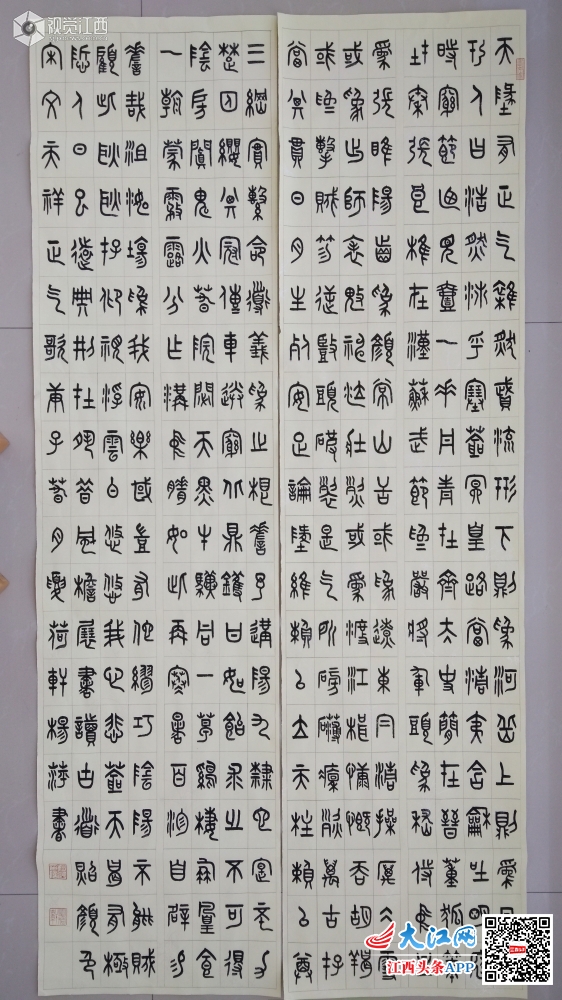 视觉江西
天墬有正气雜然賦流形下則為河嶽上則為日
於人曰浩然沛乎塞蒼冥皇路當清夷含龢吐明
時窮節乃見一一垂丹青在齊太史簡在晉董狐
在秦張良椎在漢蘇武節為嚴將軍頭為嵇侍中
為張睢陽齒為顏常山舌或為遼東冃清操厲冰雪
或為出師表鬼神泣壯烈或為渡江楫慷慨吞胡羯
或為擊賊笏逆豎頭破裂是气所磅礴凜烈萬古存
當其貫日月生死安足論墬維賴以立天柱賴以尊
三綱實繫命道義為之根嗟予遘陽九隸也實不力
楚囚纓其冠傳車送窮北鼎鑊甘如飴求之不可得
陰房闐鬼火春院閟天黑牛驥同一皁雞棲鳳凰食
一朝蒙霧露分作溝中瘠如此再寒暑百沴自辟易
嗟哉沮洳場為我安樂國豈有他繆巧陰陽不能賊
顧此耿耿存仰視浮雲白悠悠我心悲蒼天曷有極
哲人日已遠典刑在夙昔風檐展書讀古道照顏色
宋文天祥正气歌庚子春月荷軒楊萍書
大江网
江西头条APP